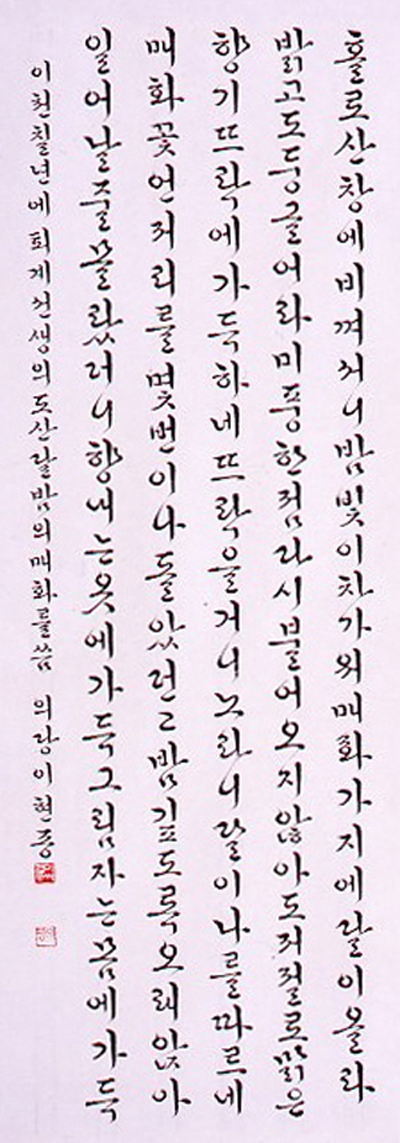 홀로산창에비껴서니밤빛이차가워매화가지에달이올라
밝고도둥글어라미풍한점다시불어오지않아도저절로맑은
향기뜨락에가득하네뜨락을거니노라니달이나를따르네
매화꽃언저리를몇번이나돌았던고밤깊도록오래앉아
일어날줄몰랐더니향내는옷에가득그림자는몸에가득
이천칠년에퇴계선생의도산달밤의매화를씀 의랑이현종